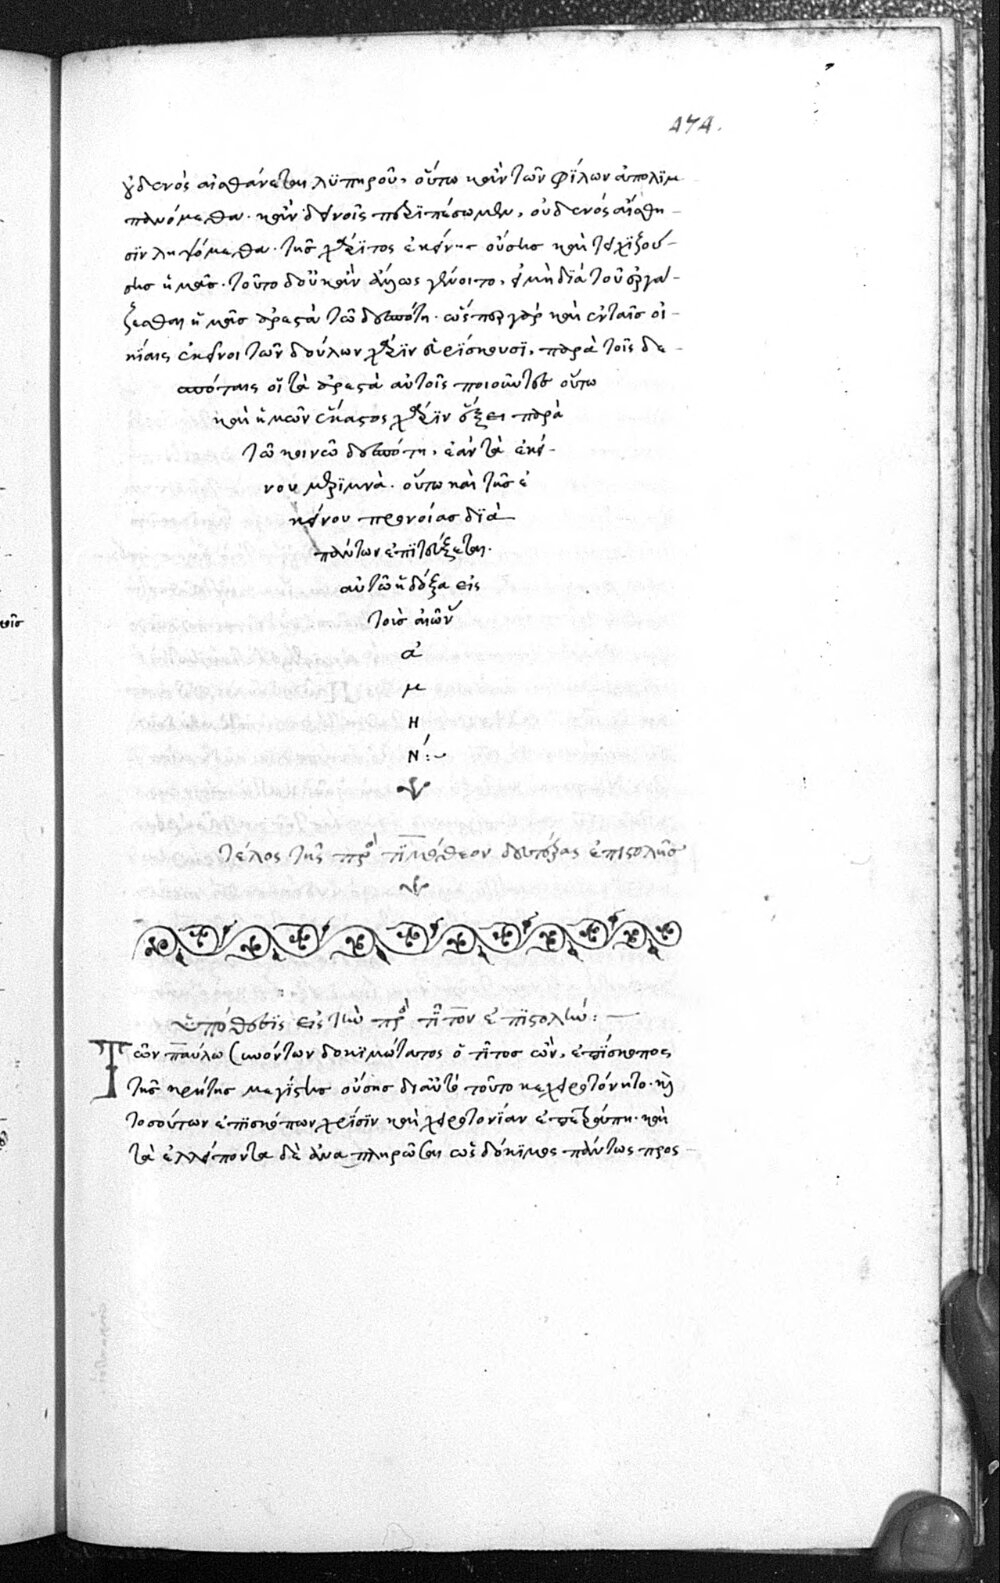 474.
οὐδενὸς αἰσθάνεται λϋπηροῦ, οὕτω κἂν τῶν φίλων ἀπολϊμ
πανόμεθα· κἂν δεινοῖς περϊπέσωμεν, οὐδενὸς αἴσθη-
σϊν ληψόμεθα· τῆς χάρϊτος ἐκείνης οὔσης καὶ τειχϊζού-
σης ἡμᾶς· τοῦτο δ' οὐκ ἂν ἄλλως γένοιτο, εἰ μὴ δϊὰ τοῦ ἐργά-
ζεσθαι ἡμᾶς ἀρεστὰ τῶ δεσπότη· ὥσπερ γὰρ καὶ ἐν ταῖς οἰ-
κίαις ἐκεῖνοι τῶν δούλων χάρϊν εὑρϊσκουσϊ, παρὰ τοῖς δε-
σπόταις οἵ τὰ ἀρεστὰ αὐτοῖς ποιοῦντες οὕτω
καὶ ἡμῶν ἕκαστος χάρϊν ἕξει παρὰ
τῶ κοινῶ δεσπότη, ἐὰν τὰ ἐκεί-
νου μερϊμνὰ· οὕτω καὶ τῆς ἐ
κείνου προνοίας δϊὰ
πάντων ἐπϊτεύξεται·
αὐτῶ ἡ δόξα εἰς
τοὺς αἰῶν
ἀ
μ
Η
Ν:
τέλος τῆς πρὸς τϊμόθεον δευτέρας ἐπιστολῆς
Ὑπόθεσϊς εἰς τὴν πρὸς τῖτον ἐπϊστολήν:
Τῶν παύλω συνόντων δοκϊμώτατος ὁ τῖτος ὢν, ἐπίσκοπος
τῆς κρήτης μεγίστης οὔσης δι αὐτό τοῦτο κεχειροτόνητο· καὶ
τοσούτων ἐπϊσκόπων χρίσϊν καὶ χειροτονίαν ἐπετράπη· καὶ
τὰ ἐλλείποντα δὲ ἀναπληρῶσαι ὡς δόκϊμος πάντως προς